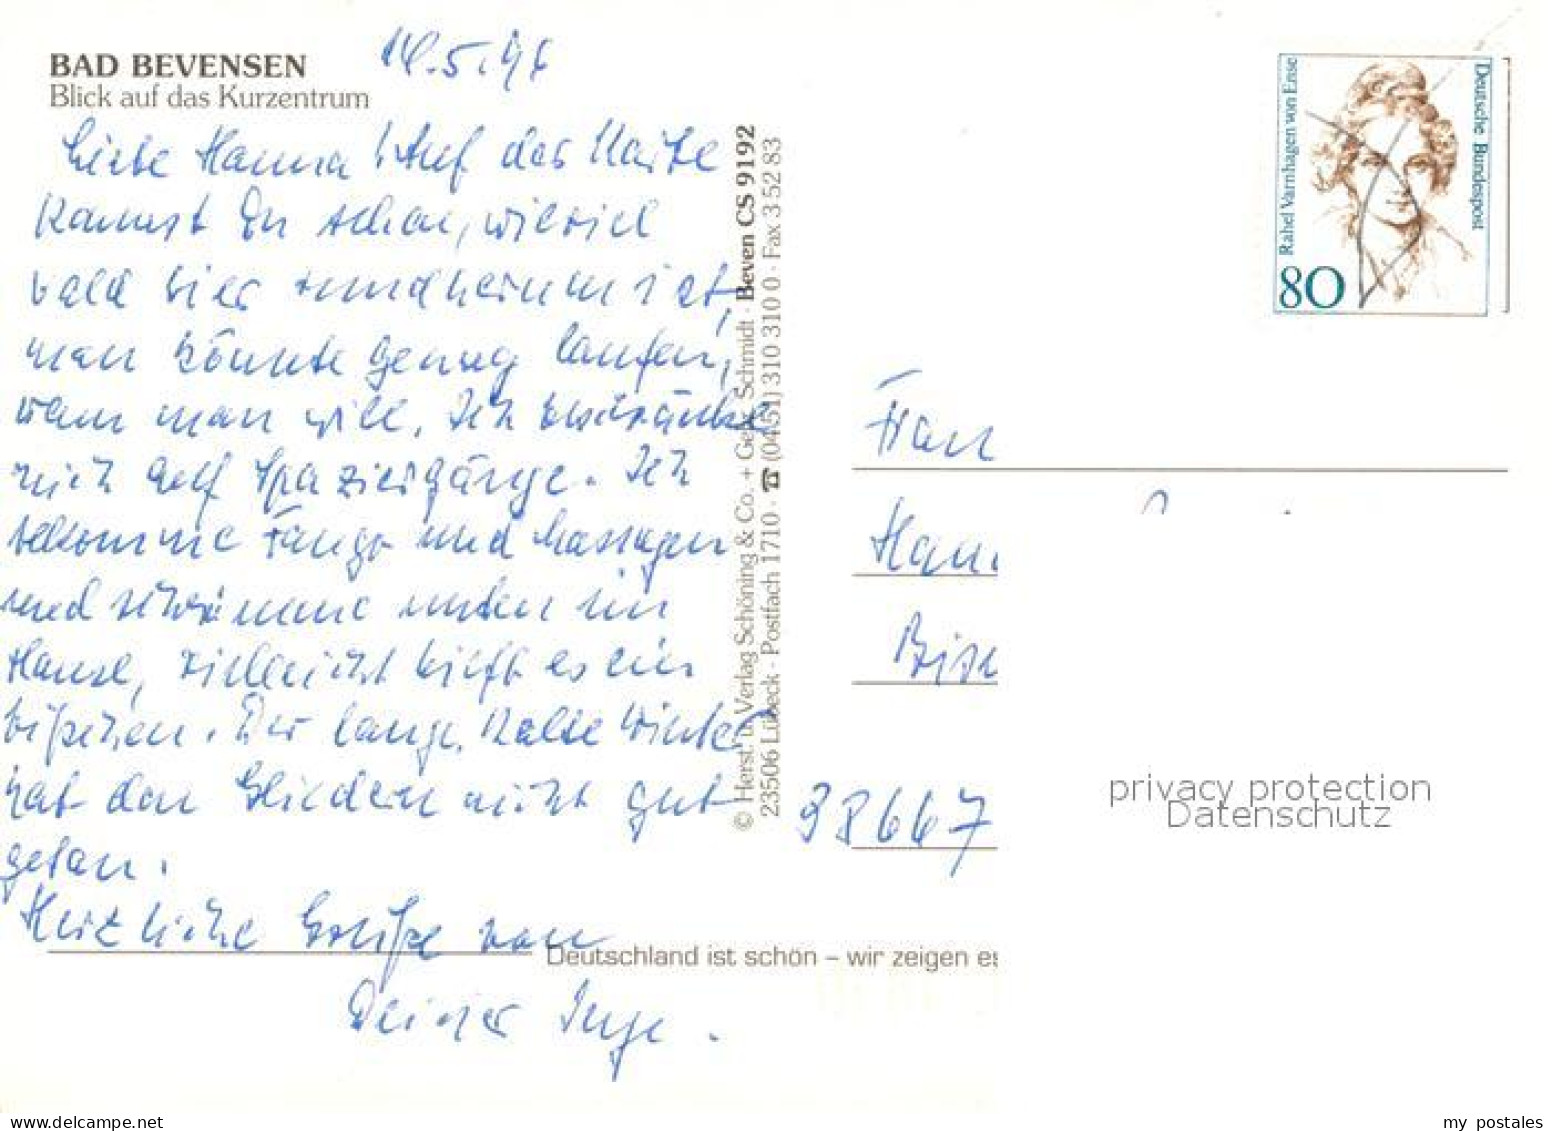 BAD BEVENSEN
Blick auf das Kurzentrum
Liebe Hanna! Auf der Karte
kannst Du sehen, wieviel
Wald hier rundherum ist,
man könnte genug laufen,
wenn man will. Ich beschränke
mich auf Spaziergänge. Ich
bekomme Fango und Massagen
und schwimme unten im
Hause, vielleicht hilft es ein
bißchen. Der lange, kalte Winter
hat den Gliedern nicht gut
getan.
Herzliche Grüße von
Deiner Inge.
© Herst. u. Verlag Schöning & Co. + Gebr. Schmidt · Beven CS 9192
23506 Lübeck · Postfach 1710 · ☎ (0451) 310 310 0 · Fax 3 52 83
Deutschland ist schön – wir zeigen es
Rahel Varnhagen von Ense
Deutsche Bundespost
80
Frau
38667
privacy protection
Datenschutz
my postales